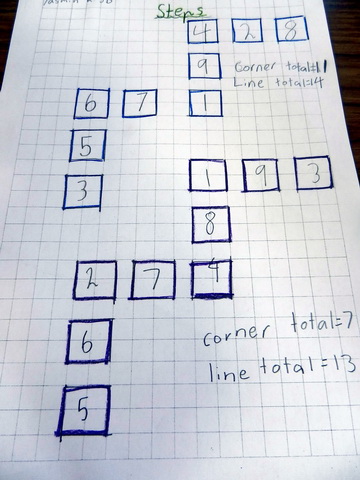 Steps
4 2 8
9 Corner total=11
Line total=14
6 7 1
5
3
1 9 3
8
2 7 4
6
corner total=7
line total=13
5